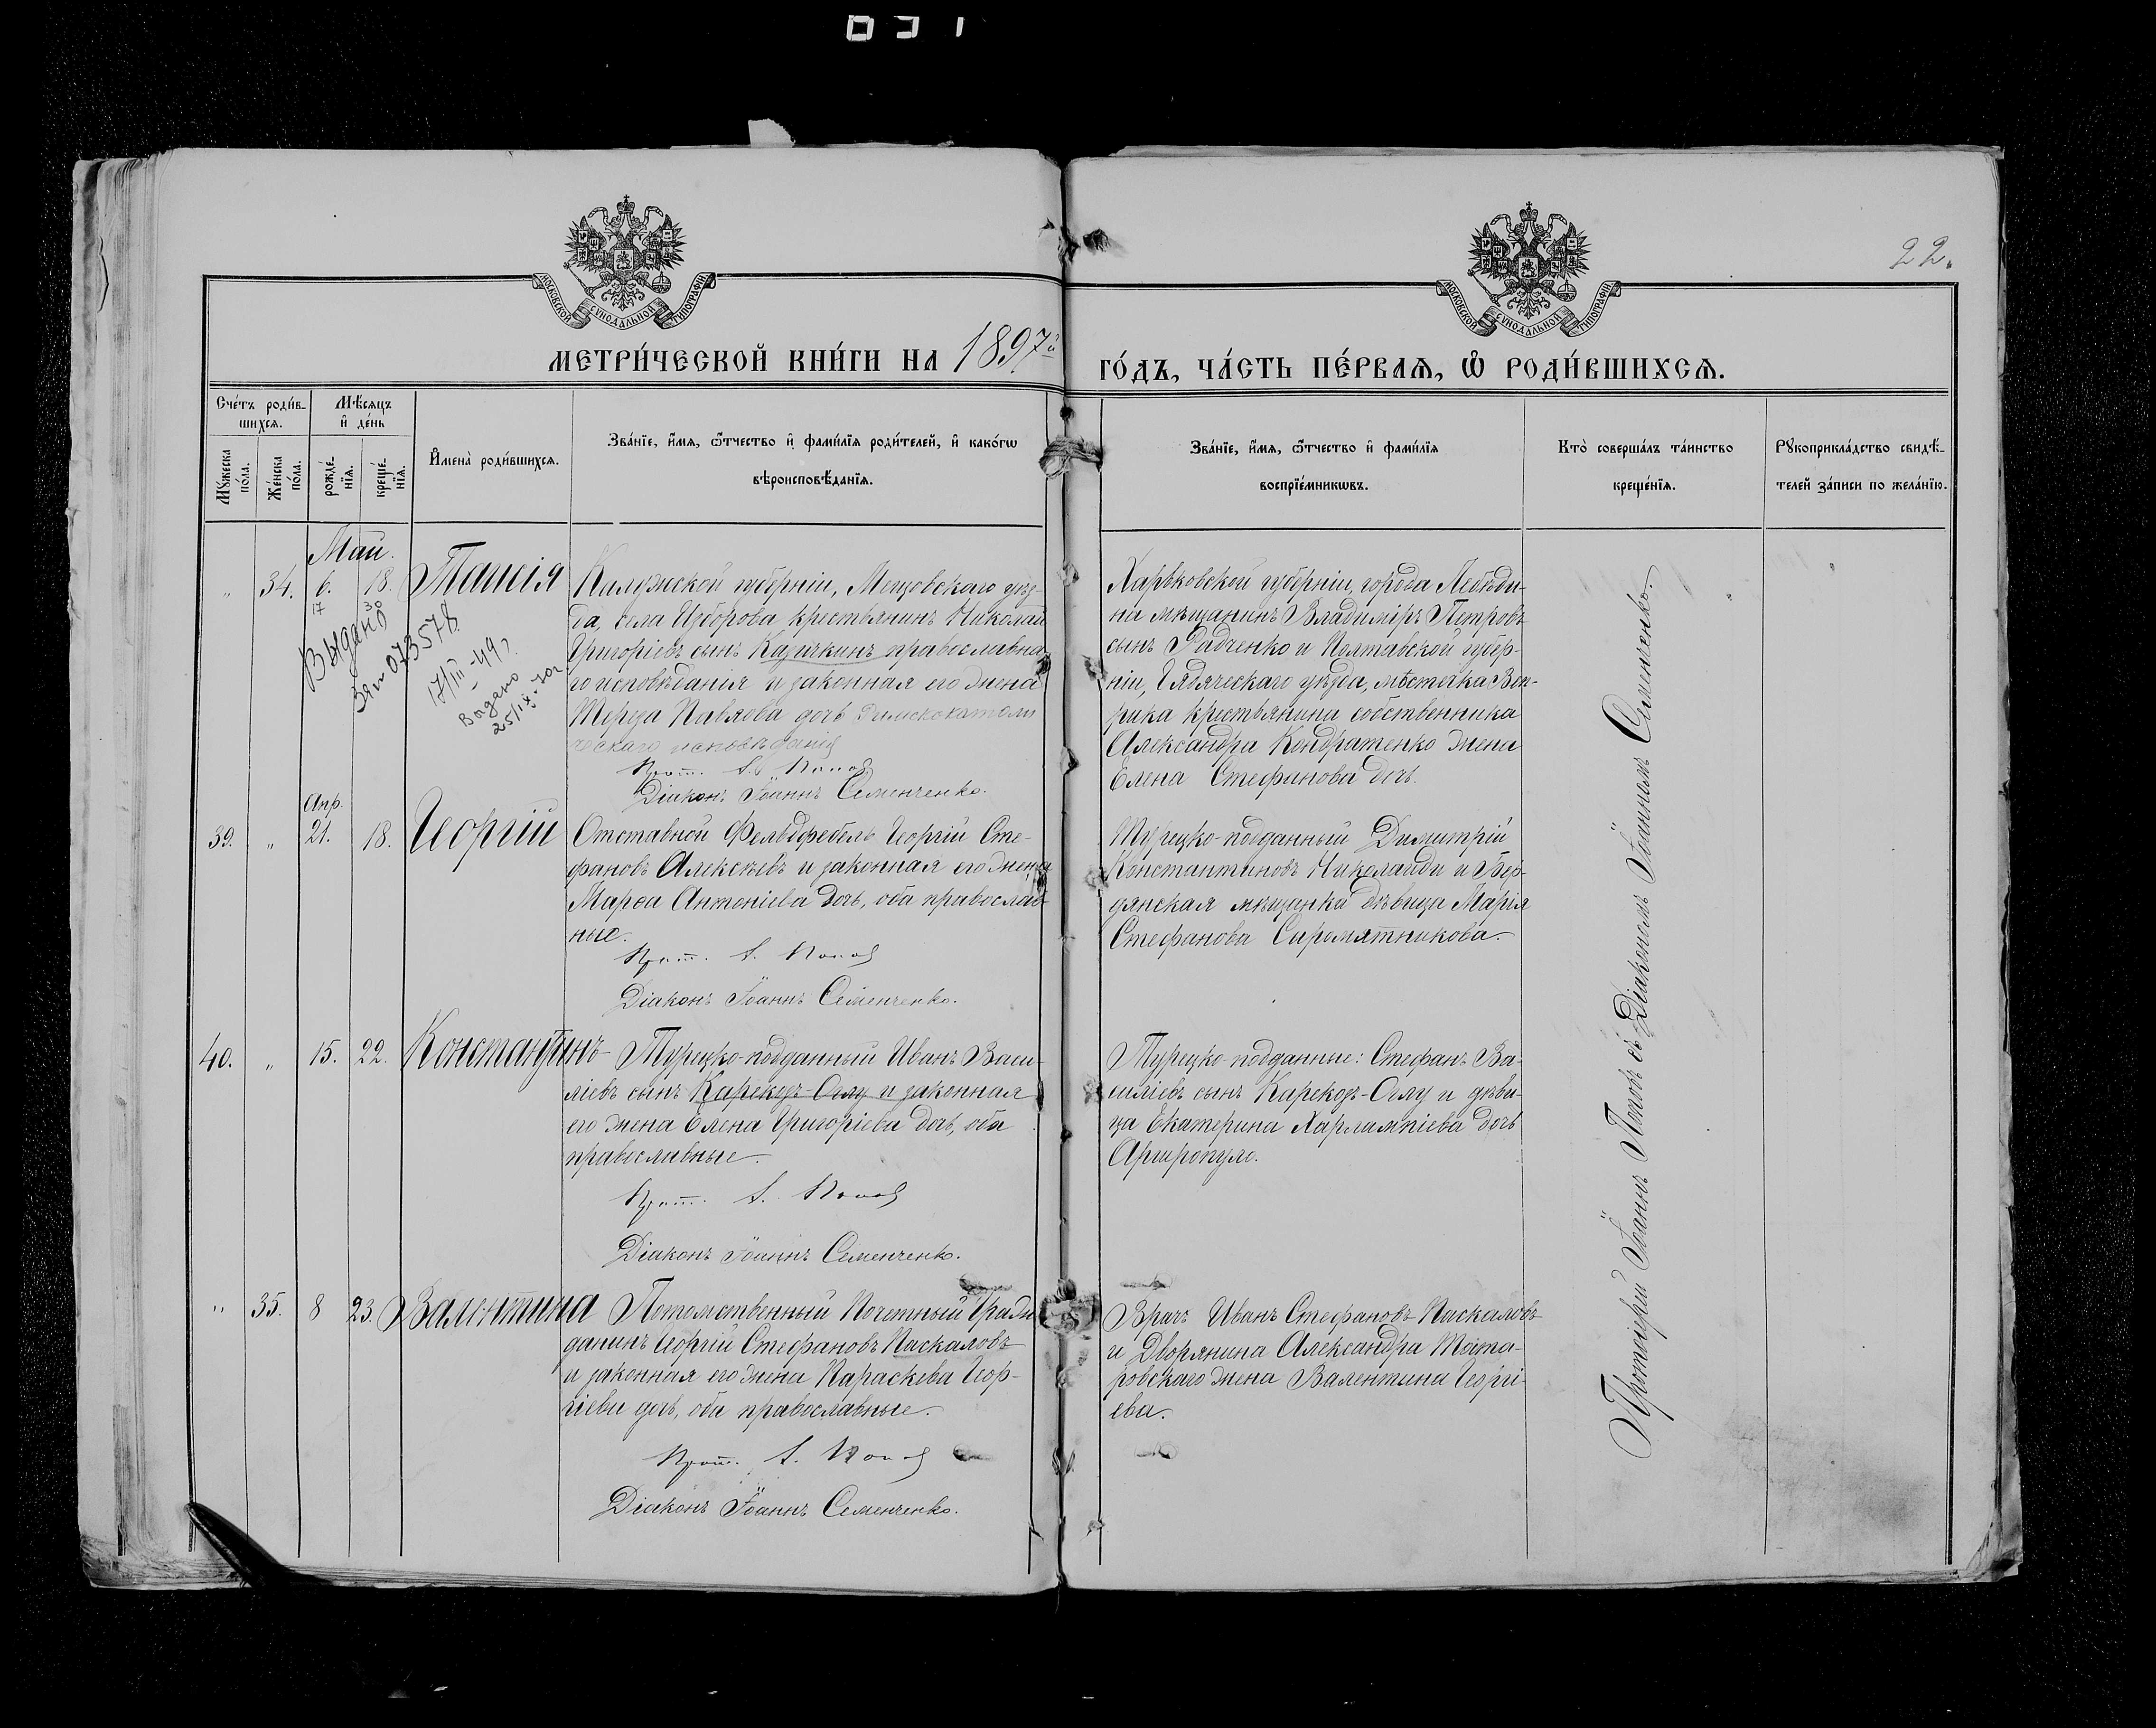 22.
МОСКОВСКОЙ СѴНОДАЛЬНОЙ ТИПОГРАФІИ
МОСКОВСКОЙ СѴНОДАЛЬНОЙ ТИПОГРАФІИ
МЕТРИ́ЧЕСКОЙ КНИ́ГИ НА 1897й ГО́ДЪ, ЧА́СТЬ ПЕ́РВАѦ, Ѡ РОДИ́ВШИХСѦ.
Сче́тъ роди́в-
шихсѧ.
Мѣ́сяцъ
и де́нь
Мꙋ́жеска по́ла.
Же́нска по́ла.
рожде́-
нїѧ.
креще́-
нїѧ.
И́мена̀ роди́вшихсѧ.
Зва́нїе, и́мѧ, ѻ҆́тчество и҆ фами́лїѧ роди́телей, и҆ како́гѡ
вѣроисповѣ́данїѧ.
Зва́нїе, и́мѧ, ѻ҆́тчество и҆ фами́лїѧ
воспрїе́мникѡвъ.
Кто̀ соверша́лъ та́инство
креще́нїѧ.
Рꙋкоприкла́дство свидѣ́-
телей за́писи по жела́нїю.
Май.
„ 34. 6. 18. Таисія
17 30
Выдано
073578
17/III-49 г.
Выдано
25/IX-70г
Калужской губерніи, Мещовскаго уѣз-
да, села Изборова крестьянинъ Николай
Григоріевъ сынъ Казичкинъ православна-
го исповѣданія и законная его жена
Тереза Павлова дочь римскокатоли
ческаго исповѣданія
Прот. І. Попов
Діаконъ Іоаннъ Семенченко.
Харьковской губерніи, города Лебеди-
на мѣщанинъ Владиміръ Петровъ
сынъ Радченко и Полтавской губер-
ніи, Гадяческаго уѣзда, мѣстечка Веп-
рика крестьянина собственника
Александра Кондратенко жена
Елена Стефанова дочь.
Апр.
39. „ 21. 18. Георгій
Отставной Фельдфебель Георгій Сте-
фановъ Алексѣевъ и законная его жена
Марѳа Антоніева дочь, оба православ-
ные.
Прот. І. Попов
Діаконъ Іоаннъ Семенченко.
Турецко-подданный Димитрій
Константиновъ Николаиди и Бер-
дянская мѣщанка дѣвица Марія
Стефанова Сиромятникова.
40. „ 15. 22. Константинъ
Турецко-подданный Иванъ Васи-
ліевъ сынъ Карекозъ-Оглу и законная
его жена Елена Григоріева дочь, оба
православные.
Прот. І. Попов
Діаконъ Іоаннъ Семенченко.
Турецко-подданные: Стефанъ Ва-
силіевъ сынъ Карекозъ-Оглу и дѣви-
ца Екатерина Харлампіева дочь
Аргиропуло.
„ 35. 8 23. Валентина
Потомственный Почетный Граж-
данинъ Георгій Стефановъ Паскаловъ
и законная его жена Параскева Геор-
гіева дочь, оба православные.
Прот. І. Попов
Діаконъ Іоаннъ Семенченко.
Врачъ Иванъ Стефановъ Паскаловъ
и Дворянина Александра
жена Валентина Георгі-
ева.
Протоіерей Іоаннъ Поповъ съ Діакономъ Іоанномъ Семенченко.